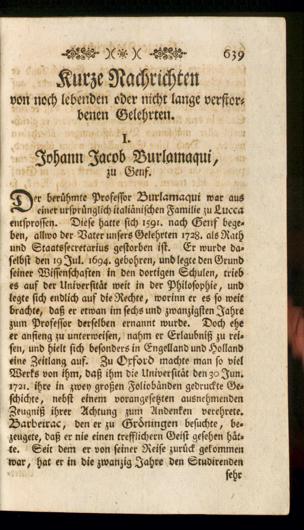 639
Kurze Nachrichten
von noch lebenden oder nicht lange verstor-
benen Gelehrten.
I.
Johann Jacob Burlamaqui,
zu Genf.
Der berühmte Professor Burlamaqui war aus
einer ursprünglich italiänischen Familie zu Lucca
entsprossen. Diese hatte sich 1591. nach Genf bege-
ben, allwo der Vater unsers Gelehrten 1728. als Rath
und Staatssecretarius gestorben ist. Er wurde da-
selbst den 19 Jul. 1694. gebohren, und legte den Grund
seiner Wissenschaften in den dortigen Schulen, trieb
es auf der Universität weit in der Philosophie, und
legte sich endlich auf die Rechte, worinn er es so weit
brachte, daß er etwan im sechs und zwanzigsten Jahre
zum Professor derselben ernannt wurde. Doch ehe
er anfieng zu unterweisen, nahm er Erlaubniß zu rei-
sen, und hielt sich besonders in Engelland und Holland
eine Zeitlang auf. Zu Oxford machte man so viel
Werks von ihm, daß ihm die Universität den 30 Jun.
1721. ihre in zwey großen Foliobänden gedruckte Ge-
schichte, nebst einem vorangesetzten ausnehmenden
Zeugniß ihrer Achtung zum Andenken verehrete.
Barbeirac, den er zu Gröningen besuchte, be-
zeugete, daß er nie einen trefflichern Geist gesehen hät-
te. Seit dem er von seiner Reise zurück gekommen
war, hat er in die zwanzig Jahre den Studirenden
sehr